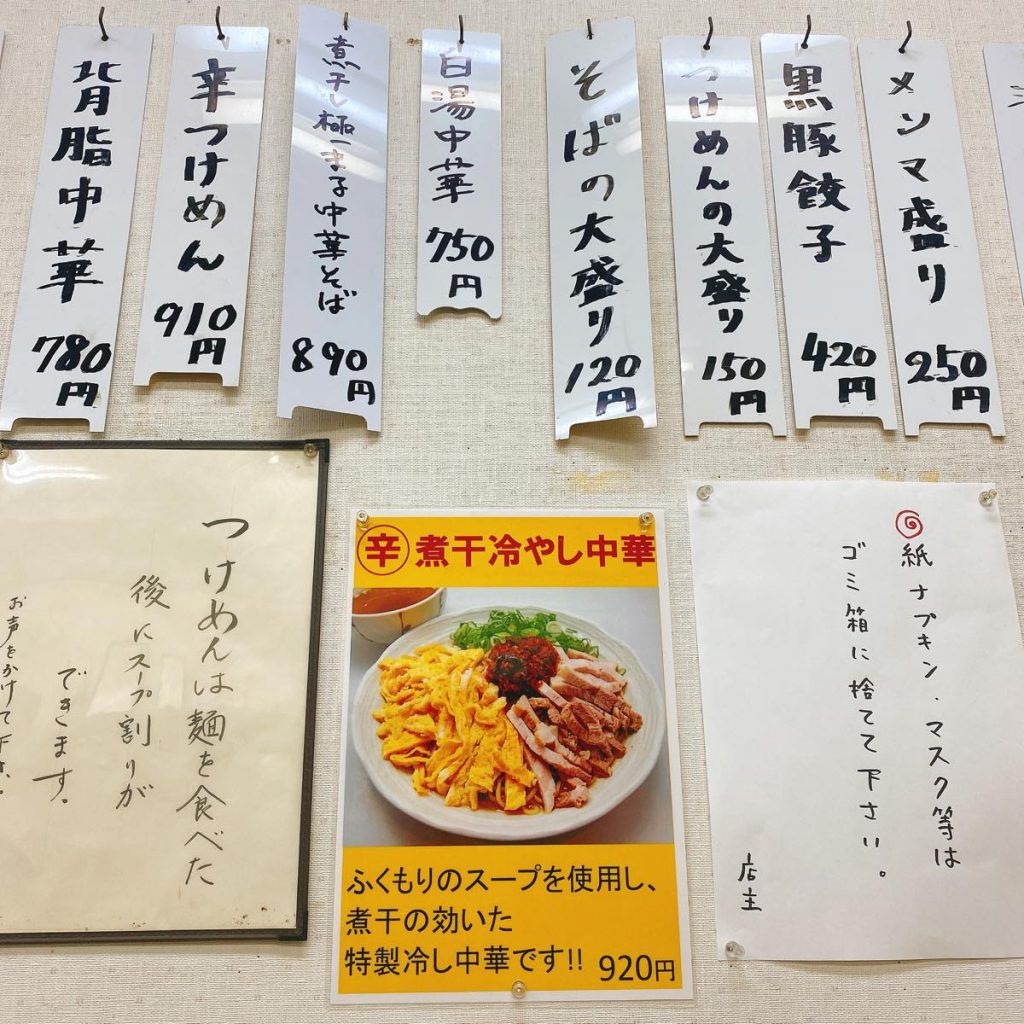 背脂中華 780円
辛つけめん 910円
煮干し極一まる中華そば 890円
白湯中華 750円
そばの大盛り 120円
つけめんの大盛り 150円
黒豚餃子 420円
メンマ盛り 250円
つけめんは麺を食べた
後にスープ割りが
できます。
お声をかけて下さい。
辛 煮干冷やし中華
ふくもりのスープを使用し、
煮干の効いた
特製冷し中華です!! 920円
紙ナプキン、マスク等は
ゴミ箱に捨てて下さい。
店主